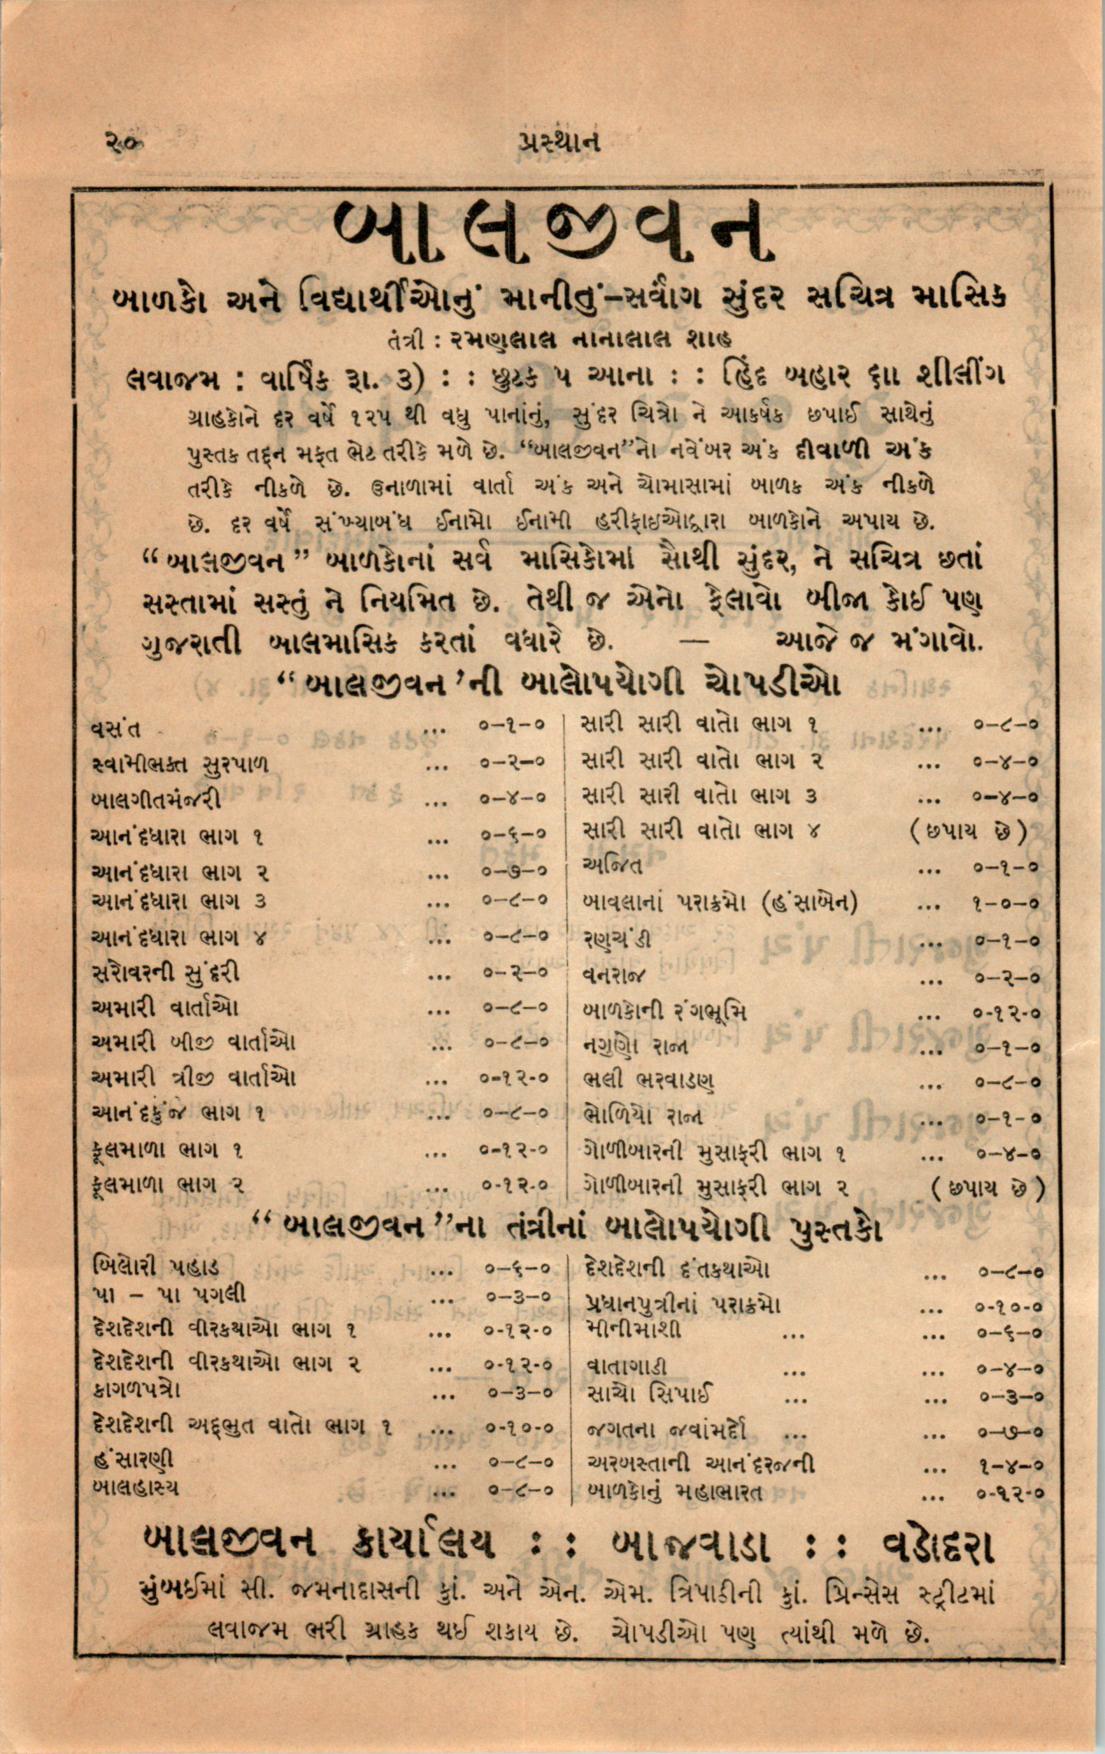 ૨૦ પ્રસ્થાન
બાલજીવન
બાળકો અને વિદ્યાર્થીઓનું માનીતું-સર્વાંગ સુંદર સચિત્ર માસિક
તંત્રી : રમણલાલ નાનાલાલ શાહ
લવાજમ : વાર્ષિક રૂા. ૩) : : છુટક ૫ આના : : હિંદ બહાર ૬ાા શીલીંગ
ગ્રાહકોને દર વર્ષે ૧૨૫ થી વધુ પાનાંનું, સુંદર ચિત્રો ને આકર્ષક છપાઈ સાથેનું
પુસ્તક તદ્દન મફત ભેટ તરીકે મળે છે. “બાલજીવન”નો નવેંબર અંક દીવાળી અંક
તરીકે નીકળે છે. ઉનાળામાં વાર્તા અંક અને ચોમાસામાં બાળક અંક નીકળે
છે. દર વર્ષે સંખ્યાબંધ ઈનામો ઈનામી હરીફાઇઓદ્વારા બાળકોને અપાય છે.
“બાલજીવન” બાળકોનાં સર્વ માસિકોમાં સૌથી સુંદર, ને સચિત્ર છતાં
સસ્તામાં સસ્તું ને નિયમિત છે. તેથી જ એનો ફેલાવો બીજા કોઈ પણ
ગુજરાતી બાલમાસિક કરતાં વધારે છે. — આજે જ મંગાવો.
“બાલજીવન’ની બાલોપયોગી ચોપડીઓ
વસંત ... ૦-૧-૦
સ્વામીભક્ત સુરપાળ ... ૦-૨-૦
બાલગીતમંજરી ... ૦-૪-૦
આનંદધારા ભાગ ૧ ... ૦-૬-૦
આનંદધારા ભાગ ૨ ... ૦-૭-૦
આનંદધારા ભાગ ૩ ... ૦-૮-૦
આનંદધારા ભાગ ૪ ... ૦-૮-૦
સરોવરની સુંદરી ... ૦-૨-૦
અમારી વાર્તાઓ ... ૦-૮-૦
અમારી બીજી વાર્તાઓ ... ૦-૮-૦
અમારી ત્રીજી વાર્તાઓ ... ૦-૧૨-૦
આનંદકુંજ ભાગ ૧ ... ૦-૮-૦
ફૂલમાળા ભાગ ૧ ... ૦-૧૨-૦
ફૂલમાળા ભાગ ૨ ... ૦-૧૨-૦
સારી સારી વાતો ભાગ ૧ ... ૦-૮-૦
સારી સારી વાતો ભાગ ૨ ... ૦-૪-૦
સારી સારી વાતો ભાગ ૩ ... ૦-૪-૦
સારી સારી વાતો ભાગ ૪ (છપાય છે)
અજિત ... ૦-૧-૦
બાવલાનાં પરાક્રમો (હંસાબેન) ... ૧-૦-૦
રણચંડી ... ૦-૧-૦
વનરાજ ... ૦-૨-૦
બાળકોની રંગભૂમિ ... ૦-૧૨-૦
નગુણો રાજા ... ૦-૧-૦
ભલી ભરવાડણ ... ૦-૮-૦
ભોળિયો રાજા ... ૦-૧-૦
ગોળીબારની મુસાફરી ભાગ ૧ ... ૦-૪-૦
ગોળીબારની મુસાફરી ભાગ ૨ (છપાય છે)
“બાલજીવન”ના તંત્રીનાં બાલોપયોગી પુસ્તકો
બિલોરી પહાડ ... ૦-૬-૦
પા – પા પગલી ... ૦-૩-૦
દેશદેશની વીરકથાઓ ભાગ ૧ ... ૦-૧૨-૦
દેશદેશની વીરકથાઓ ભાગ ૨ ... ૦-૧૨-૦
કાગળપત્રો ... ૦-૩-૦
દેશદેશની અદ્દભુત વાતો ભાગ ૧ ... ૦-૧૦-૦
હંસારણી ... ૦-૮-૦
બાલહાસ્ય ... ૦-૮-૦
દેશદેશની દંતકથાઓ ... ૦-૮-૦
પ્રધાનપુત્રીનાં પરાક્રમો ... ૦-૧૦-૦
મીનીમાશી ... ... ૦-૬-૦
વાતાગાડી ... ... ૦-૪-૦
સાચો સિપાઈ ... ... ૦-૩-૦
જગતના જવાંમર્દો ... ... ૦-૭-૦
અરબસ્તાની આનંદરજની ... ૧-૪-૦
બાળકોનું મહાભારત ... ૦-૧૨-૦
બાલજીવન કાર્યાલય : : બાજવાડા : : વડોદરા
મુંબઈમાં સી. જમનાદાસની કું. અને એન. એમ. ત્રિપાઠીની કું. પ્રિન્સેસ સ્ટ્રીટમાં
લવાજમ ભરી ગ્રાહક થઈ શકાય છે. ચોપડીઓ પણ ત્યાંથી મળે છે.